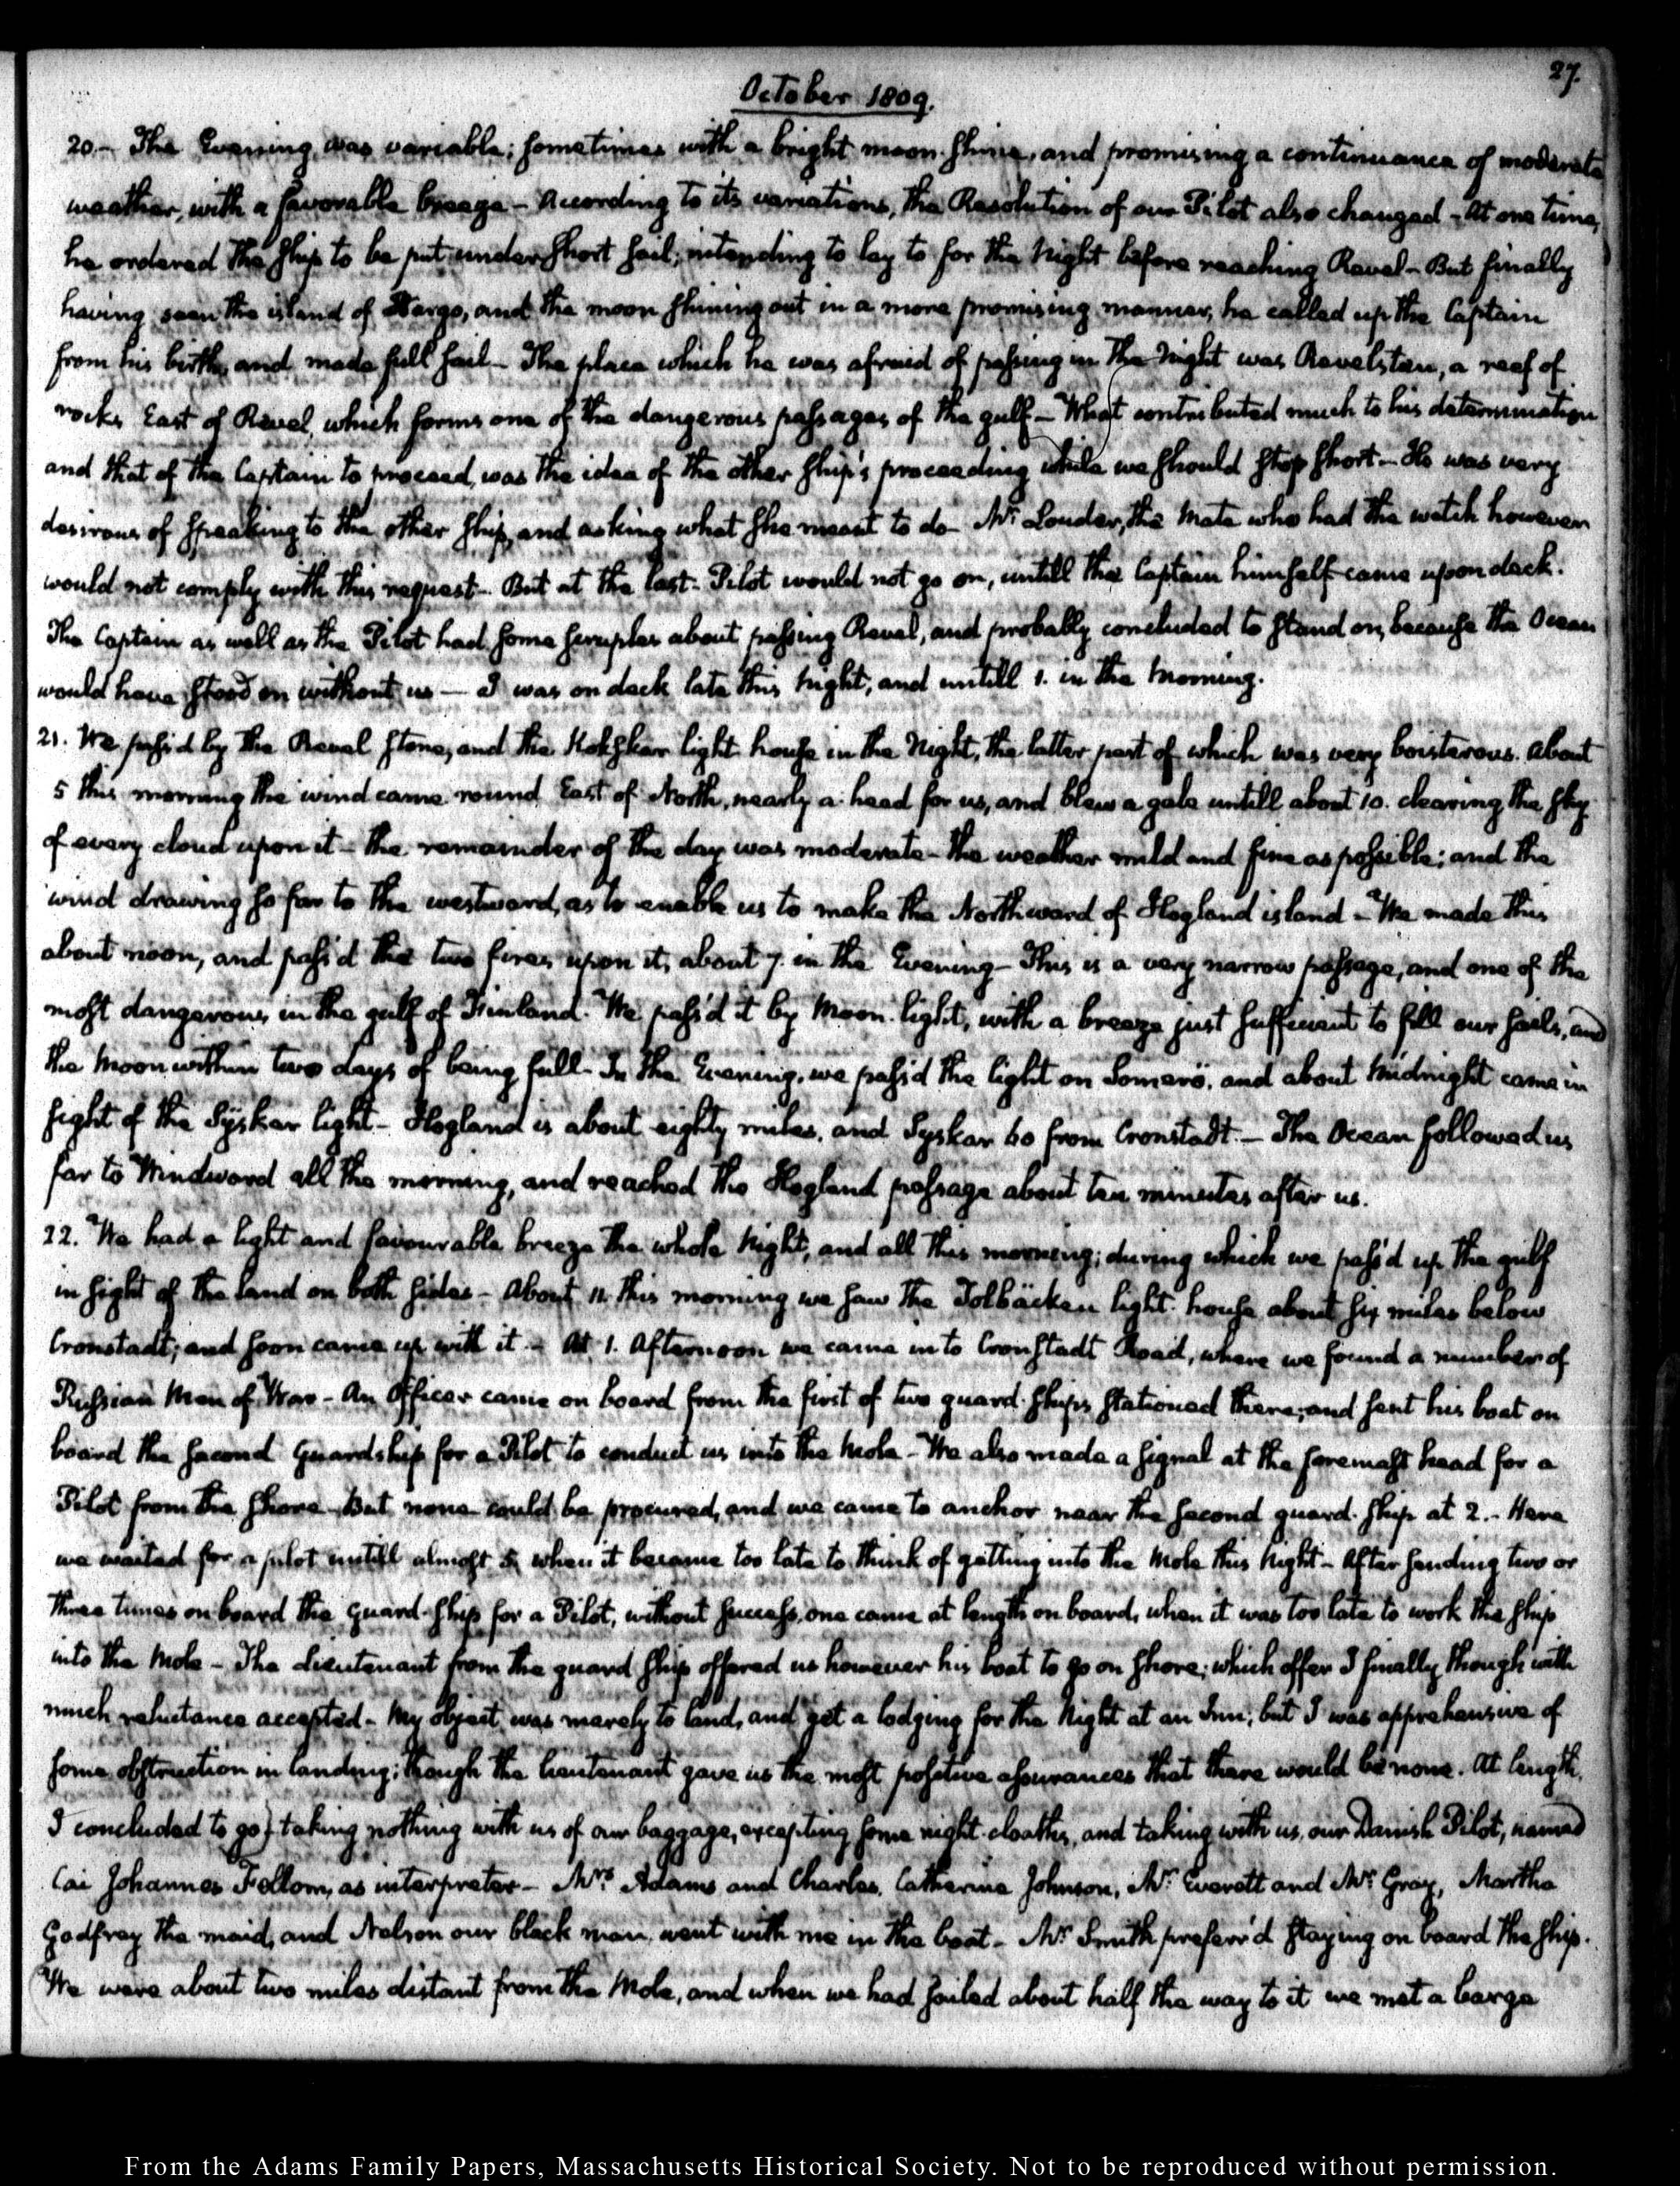 27.
October 1809.
20.- The Evening was variable; sometimes with a bright moon-shine, and promising a continuance of moderate
weather, with a favorable breeze - According to its variations, the Resolution of our Pilot also changed - At one time,
he ordered the ship to be put under short sail; intending to lay to for the Night before reaching Revel - But finally
having seen the island of Nargo, and the moon shining out in a more promising manner, he called up the Captain
from his birth, and made full sail - The place which he was afraid of passing in the Night was Revelsten, a reef of
rocks East of Revel, which forms one of the dangerous passages of the gulf - What contributed much to his determination
and that of the Captain to proceed, was the idea of the other ship's proceeding while we should stop short - He was very
desirous of speaking to the other ship, and asking what she meant to do - Mr. Louder, the Mate who had the watch however
would not comply with this request - But at the last - Pilot would not go on, untill the Captain himself came upon deck.
The Captain as well as the Pilot had some scruples about passing Revel, and probably concluded to stand on, because the Ocean
would have stood on without us — I was on deck late this Night, and untill 1. in the Morning.
21. We pass'd by the Revel stone, and the Kokskar light house in the Night, the latter part of which was very boisterous. About
5 this morning the wind came round East of North, nearly a-head for us, and blew a gale untill about 10. clearing the sky
of every cloud upon it - the remainder of the day was moderate - the weather mild and fine as possible; and the
wind drawing so far to the westward, as to enable us to make the Northward of Hogland island - We made this
about noon, and pass'd the two fires upon it, about 7. in the Evening - This is a very narrow passage, and one of the
most dangerous in the gulf of Finland. We pass'd it by Moon-light, with a breeze just sufficient to fill our sails, and
the Moon within two days of being full - In the Evening, we pass'd the light on Somerö, and about Midnight came in
sight of the Syskar light - Hogland is about eighty miles, and Syskar 60 from Cronstadt. - The Ocean followed us
far to Windward all the morning, and reached the Hogland passage about ten minutes after us.
22. We had a light and favourable breeze the whole Night, and all this morning; during which we pass'd up the gulf
in sight of the land on both sides - About 11 this morning we saw the Tolbäcken light-house about six miles below
Cronstadt; and soon came up with it - At 1. Afternoon we came into Cronstadt Road, where we found a number of
Russian Men of War - An Officer came on board from the first of two guard-ships stationed there; and sent his boat on
board the second Guardship for a Pilot to conduct us into the Mole - We also made a signal at the foremast head for a
Pilot from the shore - But none could be procured, and we came to anchor near the second guard-ship at 2. - Here
we waited for a pilot untill almost 5, when it became too late to think of getting into the Mole this Night - After sending two or
three times on board the guard-ship for a Pilot, without success, one came at length on board, when it was too late to work the ship
into the Mole - The Lieutenant from the guard ship offered us however his boat to go on shore; which offer I finally though with
much reluctance accepted - My object was merely to land, and get a lodging for the Night at an Inn; but I was apprehensive of
some obstruction in landing; though the lieutenant gave us the most positive assurances that there would be none. At length
I concluded to go, taking nothing with us of our baggage, excepting some night cloathes, and taking with us, our Danish Pilot, named
Cai Johannes Fellom, as interpreter - Mrs. Adams and Charles, Catherine Johnson, Mr. Everett and Mr. Gray, Martha
Godfrey the maid, and Nelson our black man went with me in the boat - Mr. Smith preferr'd staying on board the ship.
We were about two miles distant from the Mole, and when we had sailed about half the way to it we met a barge
From the Adams Family Papers, Massachusetts Historical Society. Not to be reproduced without permission.